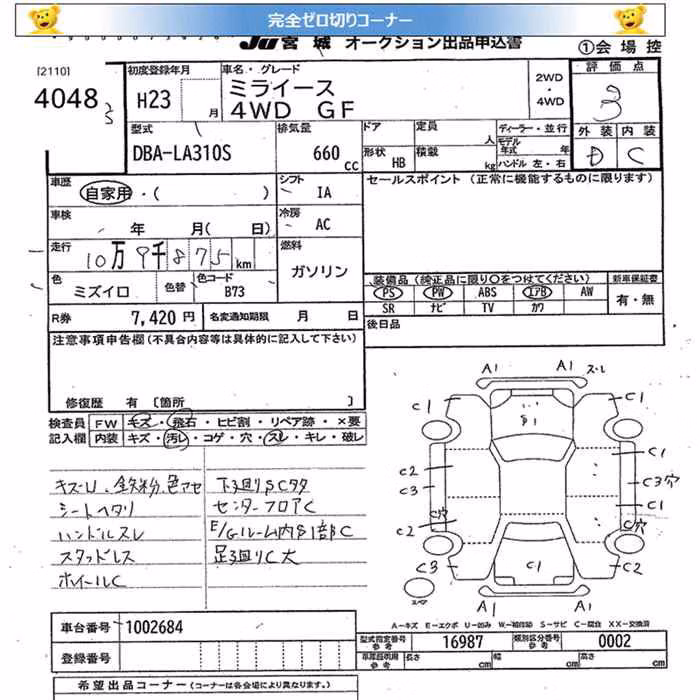 完全ゼロ切りコーナー
JU宮城 オークション出品申込書
①会場控
[2110]
4048
初度登録年月
H23 月
車名・グレード
ミライース
4WD GF
2WD
・
4WD
評価点
3
外装 内装
D C
型式
DBA-LA310S
排気量
660
cc
ドア
形状 HB
定員 人
積載 kg
ディーラー・並行
モデル年式 年
ハンドル 左・右
車歴
自家用・( )
シフト
IA
セールスポイント (正常に機能するものに限ります)
車検
年 月( 日)
冷房
AC
走行
10万9千875km
燃料
ガソリン
色
ミズイロ
色替
色コード
B73
装備品 (純正品に限り○をつけてください)
PS PW ABS エアB AW
SR ナビ TV カワ
新車保証書
有・無
R券
7,420円
名変通知期限 月 日
後日品
注意事項申告欄(不具合内容等は具体的に記入して下さい)
修復歴 有 [箇所 ]
検査員 FW キズ・飛石・ヒビ割・リペア跡・×要
記入欄 内装 キズ・汚レ・コゲ・穴・スレ・キレ・破レ
キズU、鉄粉、色アセ
シートヘタリ
ハンドルスレ
スタッドレス
ホイールC
下廻りSCタタ
センターフロアC
E/Gルーム内S1部C
足廻りC大
A1 A1 スレ
C1 C1
S1
C2 C1
C3 C3穴
C穴 C1
C2 C穴
C3 C1 C2
A1 A1
スペア
A-キズ E-エクボ U-凹み W-補修跡 S-サビ C-腐食 XX-交換済
車台番号 1002684
型式指定番号 参考 16987
類別区分番号 参考 0002
登録番号
車庫証明用 参考 長さ cm 幅 cm 高さ cm
希望出品コーナー(コーナーは各会場により異なります。)